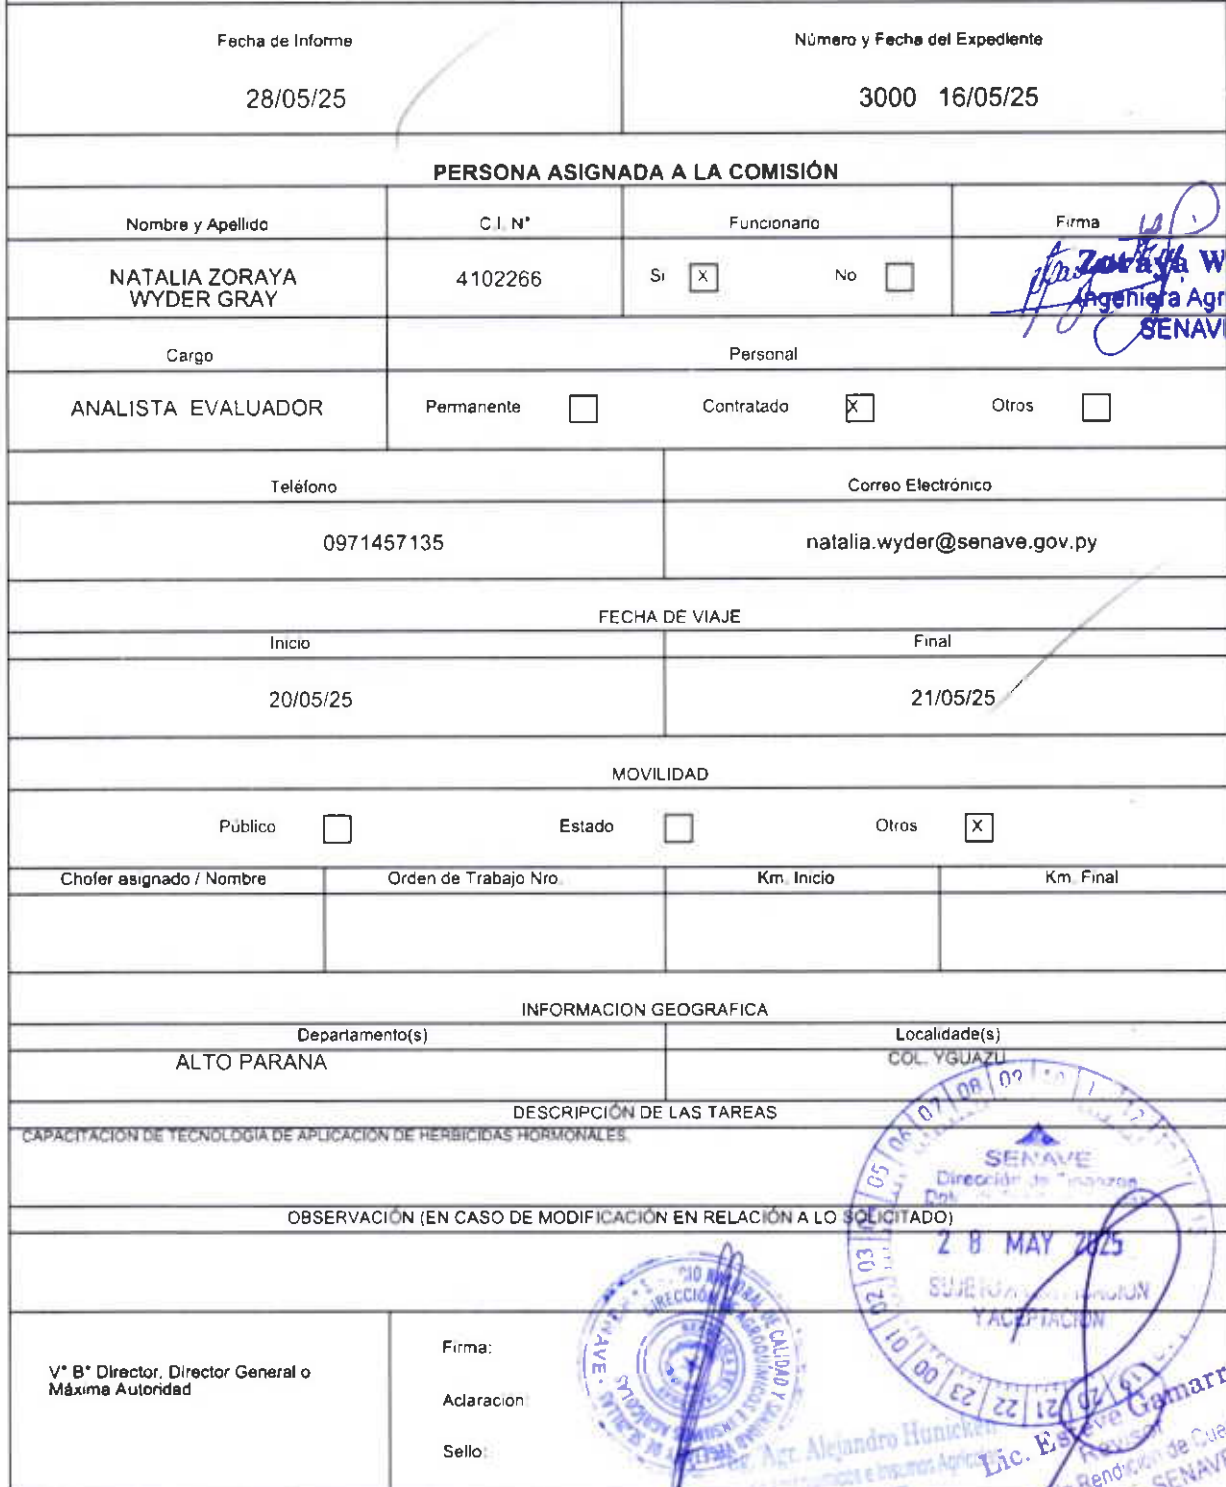 Fecha de Informe
Número y Fecha del Expediente
28/05/25
3000 16/05/25
PERSONA ASIGNADA A LA COMISIÓN
Nombre y Apellido
C.I. N°
Funcionario
Firma
NATALIA ZORAYA
WYDER GRAY
4102266
Si X
No
Zoraya W
Ingeniera Agr
SENAVE
Cargo
Personal
ANALISTA EVALUADOR
Permanente
Contratado X
Otros
Teléfono
Correo Electrónico
0971457135
natalia.wyder@senave.gov.py
FECHA DE VIAJE
Inicio
Final
20/05/25
21/05/25
MOVILIDAD
Público
Estado
Otros X
Chofer asignado / Nombre
Orden de Trabajo Nro.
Km. Inicio
Km. Final
INFORMACION GEOGRAFICA
Departamento(s)
Localidade(s)
ALTO PARANA
COL. YGUAZU
DESCRIPCIÓN DE LAS TAREAS
CAPACITACION DE TECNOLOGIA DE APLICACION DE HERBICIDAS HORMONALES.
SENAVE
Dirección de Finanzas
OBSERVACIÓN (EN CASO DE MODIFICACIÓN EN RELACIÓN A LO SOLICITADO)
28 MAY 2025
Y ACEPTACION
V° B° Director, Director General o
Máxima Autoridad
Firma:
Aclaracion:
Sello:
Agr. Alejandro Hunicken
Lic. Esteve Gamarr
Revisor
Rendición de Cue
SENAVE